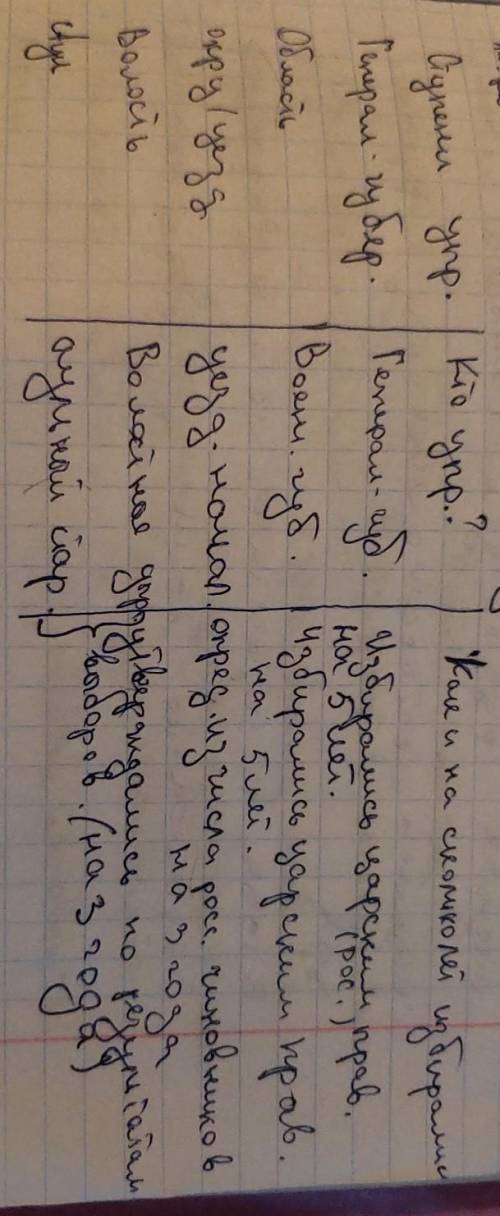 Ступени упр. Кто упр.? Как и на сколько лет избирались
Генерал-губер. Генерал-губ. Избирались царским (рос.) прав.
на 5 лет.
Область Воен. губ. Избирались царским прав.
на 5 лет.
окру/уезд уезд. начал. опред. из числа росс. чиновников
на 3 года
Волость Волостной утверждались по результатам
аульный стар. выборов. (на 3 года)